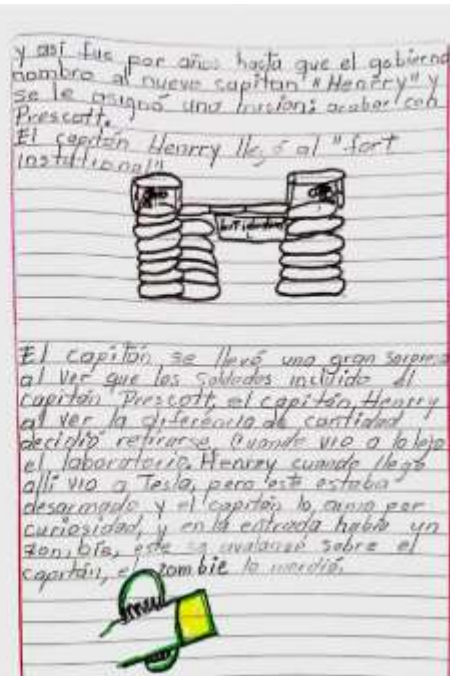 y así fue por años hasta que el gobierno
nombro al nuevo capitan "Henrry" y
se le asignó una mision: acabar con
Prescott.
El capitán Henrry llegó al "fort
El capitán se llevó una gran sorpresa
al ver que los soldados incluido al
capitán Prescott, el capitán Henrry
al ver la diferencia de cantidad
decidió retirarse, Cuando vio a lo lejo
el laboratorio. Henrry cuando llego
alli vio a Tesla, pero este estaba
desarmado, y el capitán lo por
curiosidad, y en la entrada había un
zombie, este se sobre el
capitán, el zombie lo mordió.